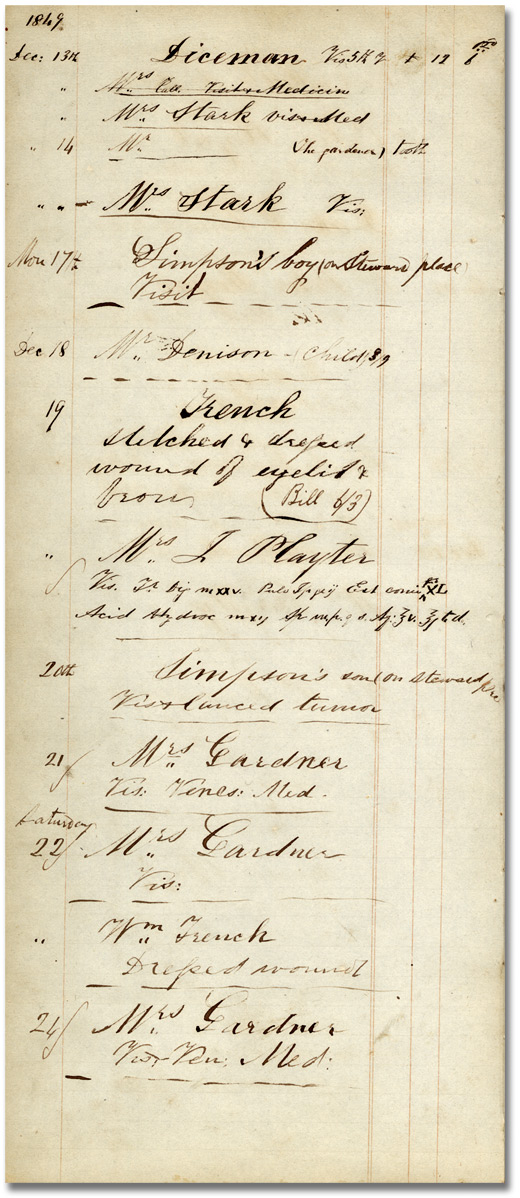 1849
Dec: 13th Diceman Vis 12 6
" Mrs Visit + Medicine
" Mrs Stark vis + Med
" 14 Mr (the gardener) tooth
" " Mrs Stark Vis:
Mon 17th Simpson's boy (on Steward place)
Visit
Dec 18 Mr Denison Child
19 French
stitched & dressed
wound of eyelid &
brow (Bill 6/3)
" Mrs J Playter
Vis. m xxv. Ext XL
Acid Hydroc
20th Simpson's son (on Steward
Vis & lanced tumor
21 Mrs Gardner
Vis: Venes: Med.
Saturday
22 Mrs Gardner
Vis:
" Wm French
Dressed wound
24 Mrs Gardner
Vis + Ven: Med: